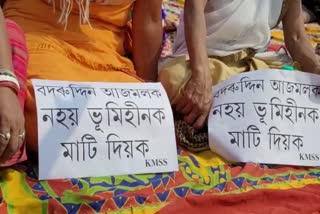 KMSS
বদৰুদ্দিন আজমলক
নহয় ভূমিহীনক
মাটি দিয়ক
KMSS
বদৰুদ্দিন আজমলক
নহয় ভূমিহীনক
মাটি দিয়ক
KMSS